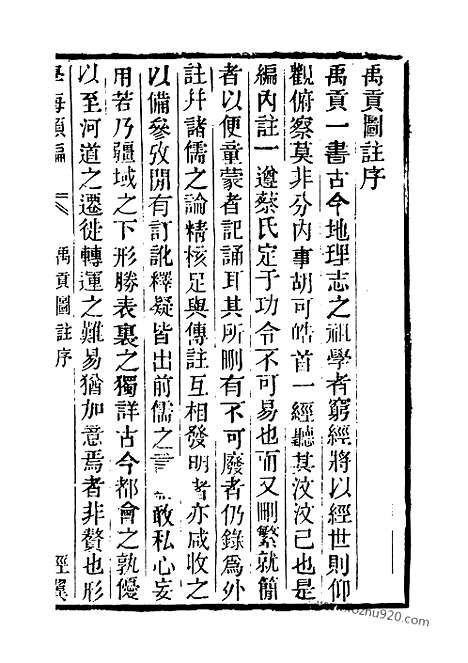 禹貢圖註序
禹貢一書古今地理志之祖學者窮經將以經世則仰
觀俯察莫非分內事胡可皓首一經聽其汶汶已也是
編內註一遵蔡氏定于功令不可易也而又刪繁就簡
者以便童蒙者記誦耳其所刪有不可廢者仍錄為外
註幷諸儒之論精核足與傳註互相發明者亦咸收之
以備參攷閒有訂訛釋疑皆出前儒之言 敢私心妄
用若乃疆域之下形勝表裏之獨詳古今都會之孰優
以至河道之遷徙轉運之難易猶加意焉者非贅也形
學海類編
禹貢圖註序
經翼
www.xozhu920.com